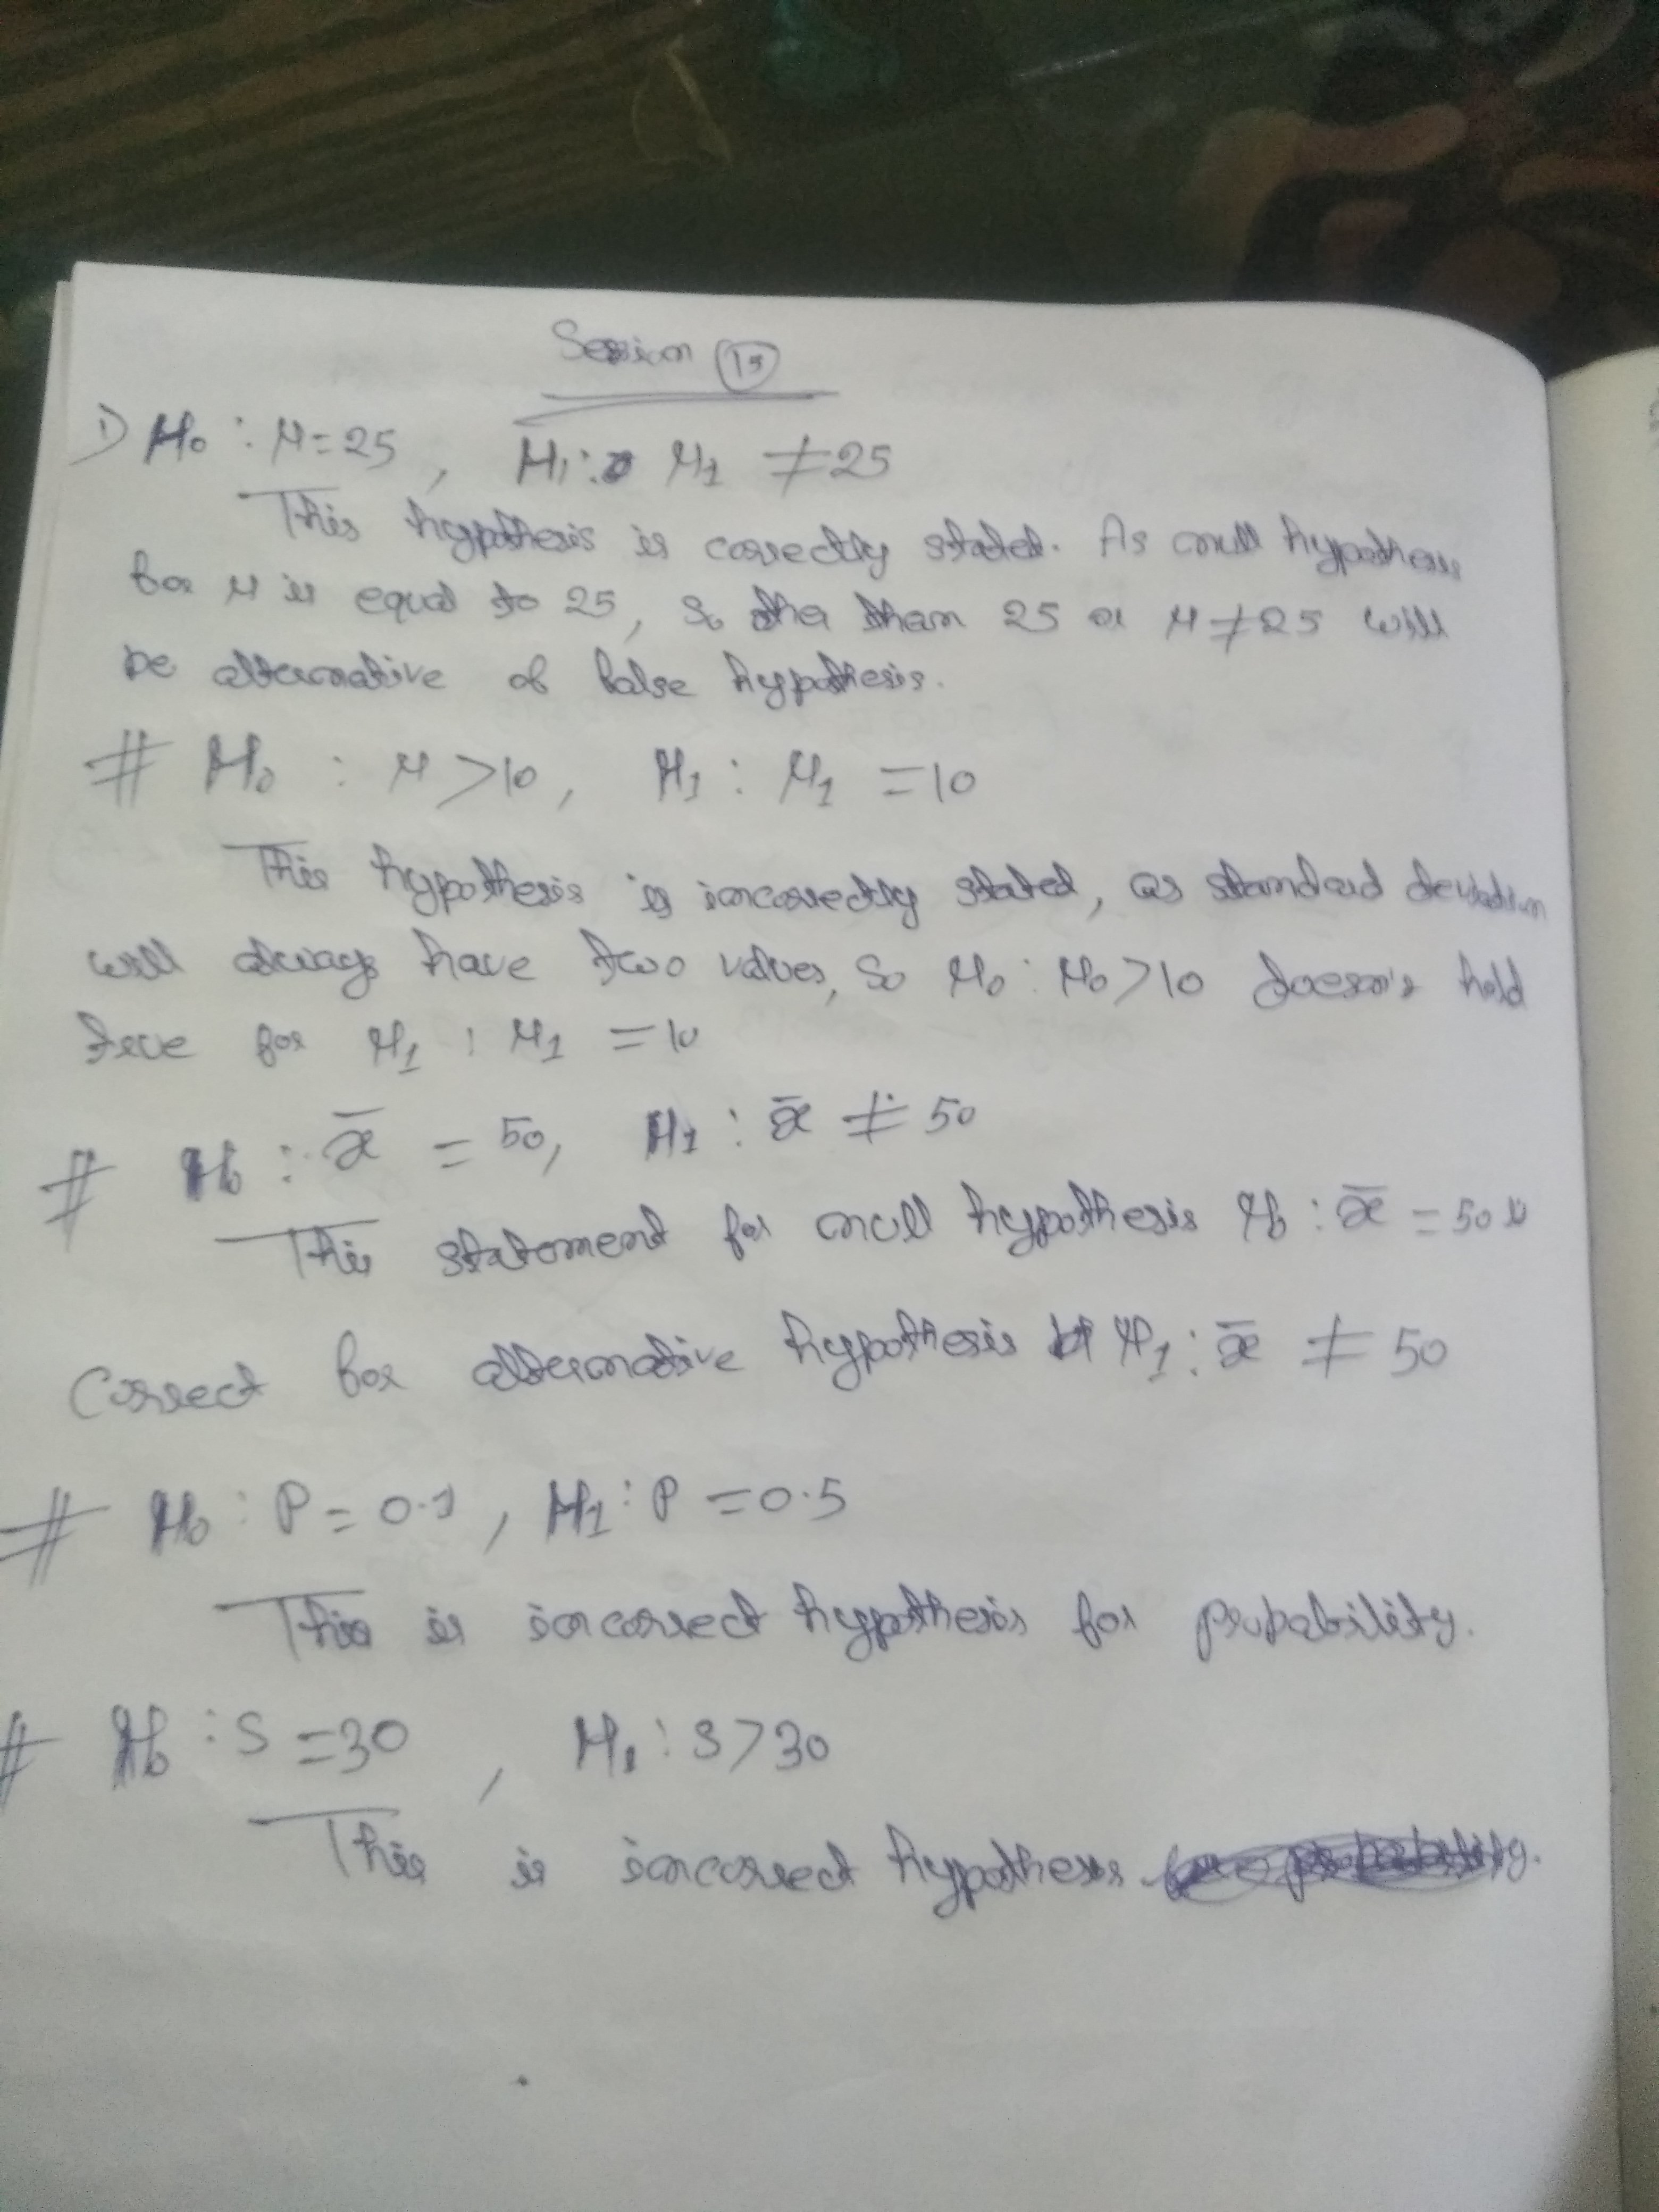 Session 15
1) H₀ : μ = 25 , H₁ : μ₁ ≠ 25
This hypothesis is correctly stated. As null hypothesis
for μ is equal to 25, so other than 25 or μ ≠ 25 will
be alternative of false hypothesis.
# H₀ : μ > 10, H₁ : μ₁ = 10
This hypothesis is incorrectly stated, as standard deviation
will always have two values, so H₀ : μ₀ > 10 doesn't hold
true for H₁ : μ₁ = 10
# H₀ : x̄ = 50, H₁ : x̄ ≠ 50
This statement for null hypothesis H₀ : x̄ = 50 is
correct for alternative hypothesis H₁ : x̄ ≠ 50
# H₀ : P = 0.1 , H₁ : P = 0.5
This is incorrect hypothesis for probability.
# H₀ : S = 30 , H₁ : S > 30
This is incorrect hypothesis